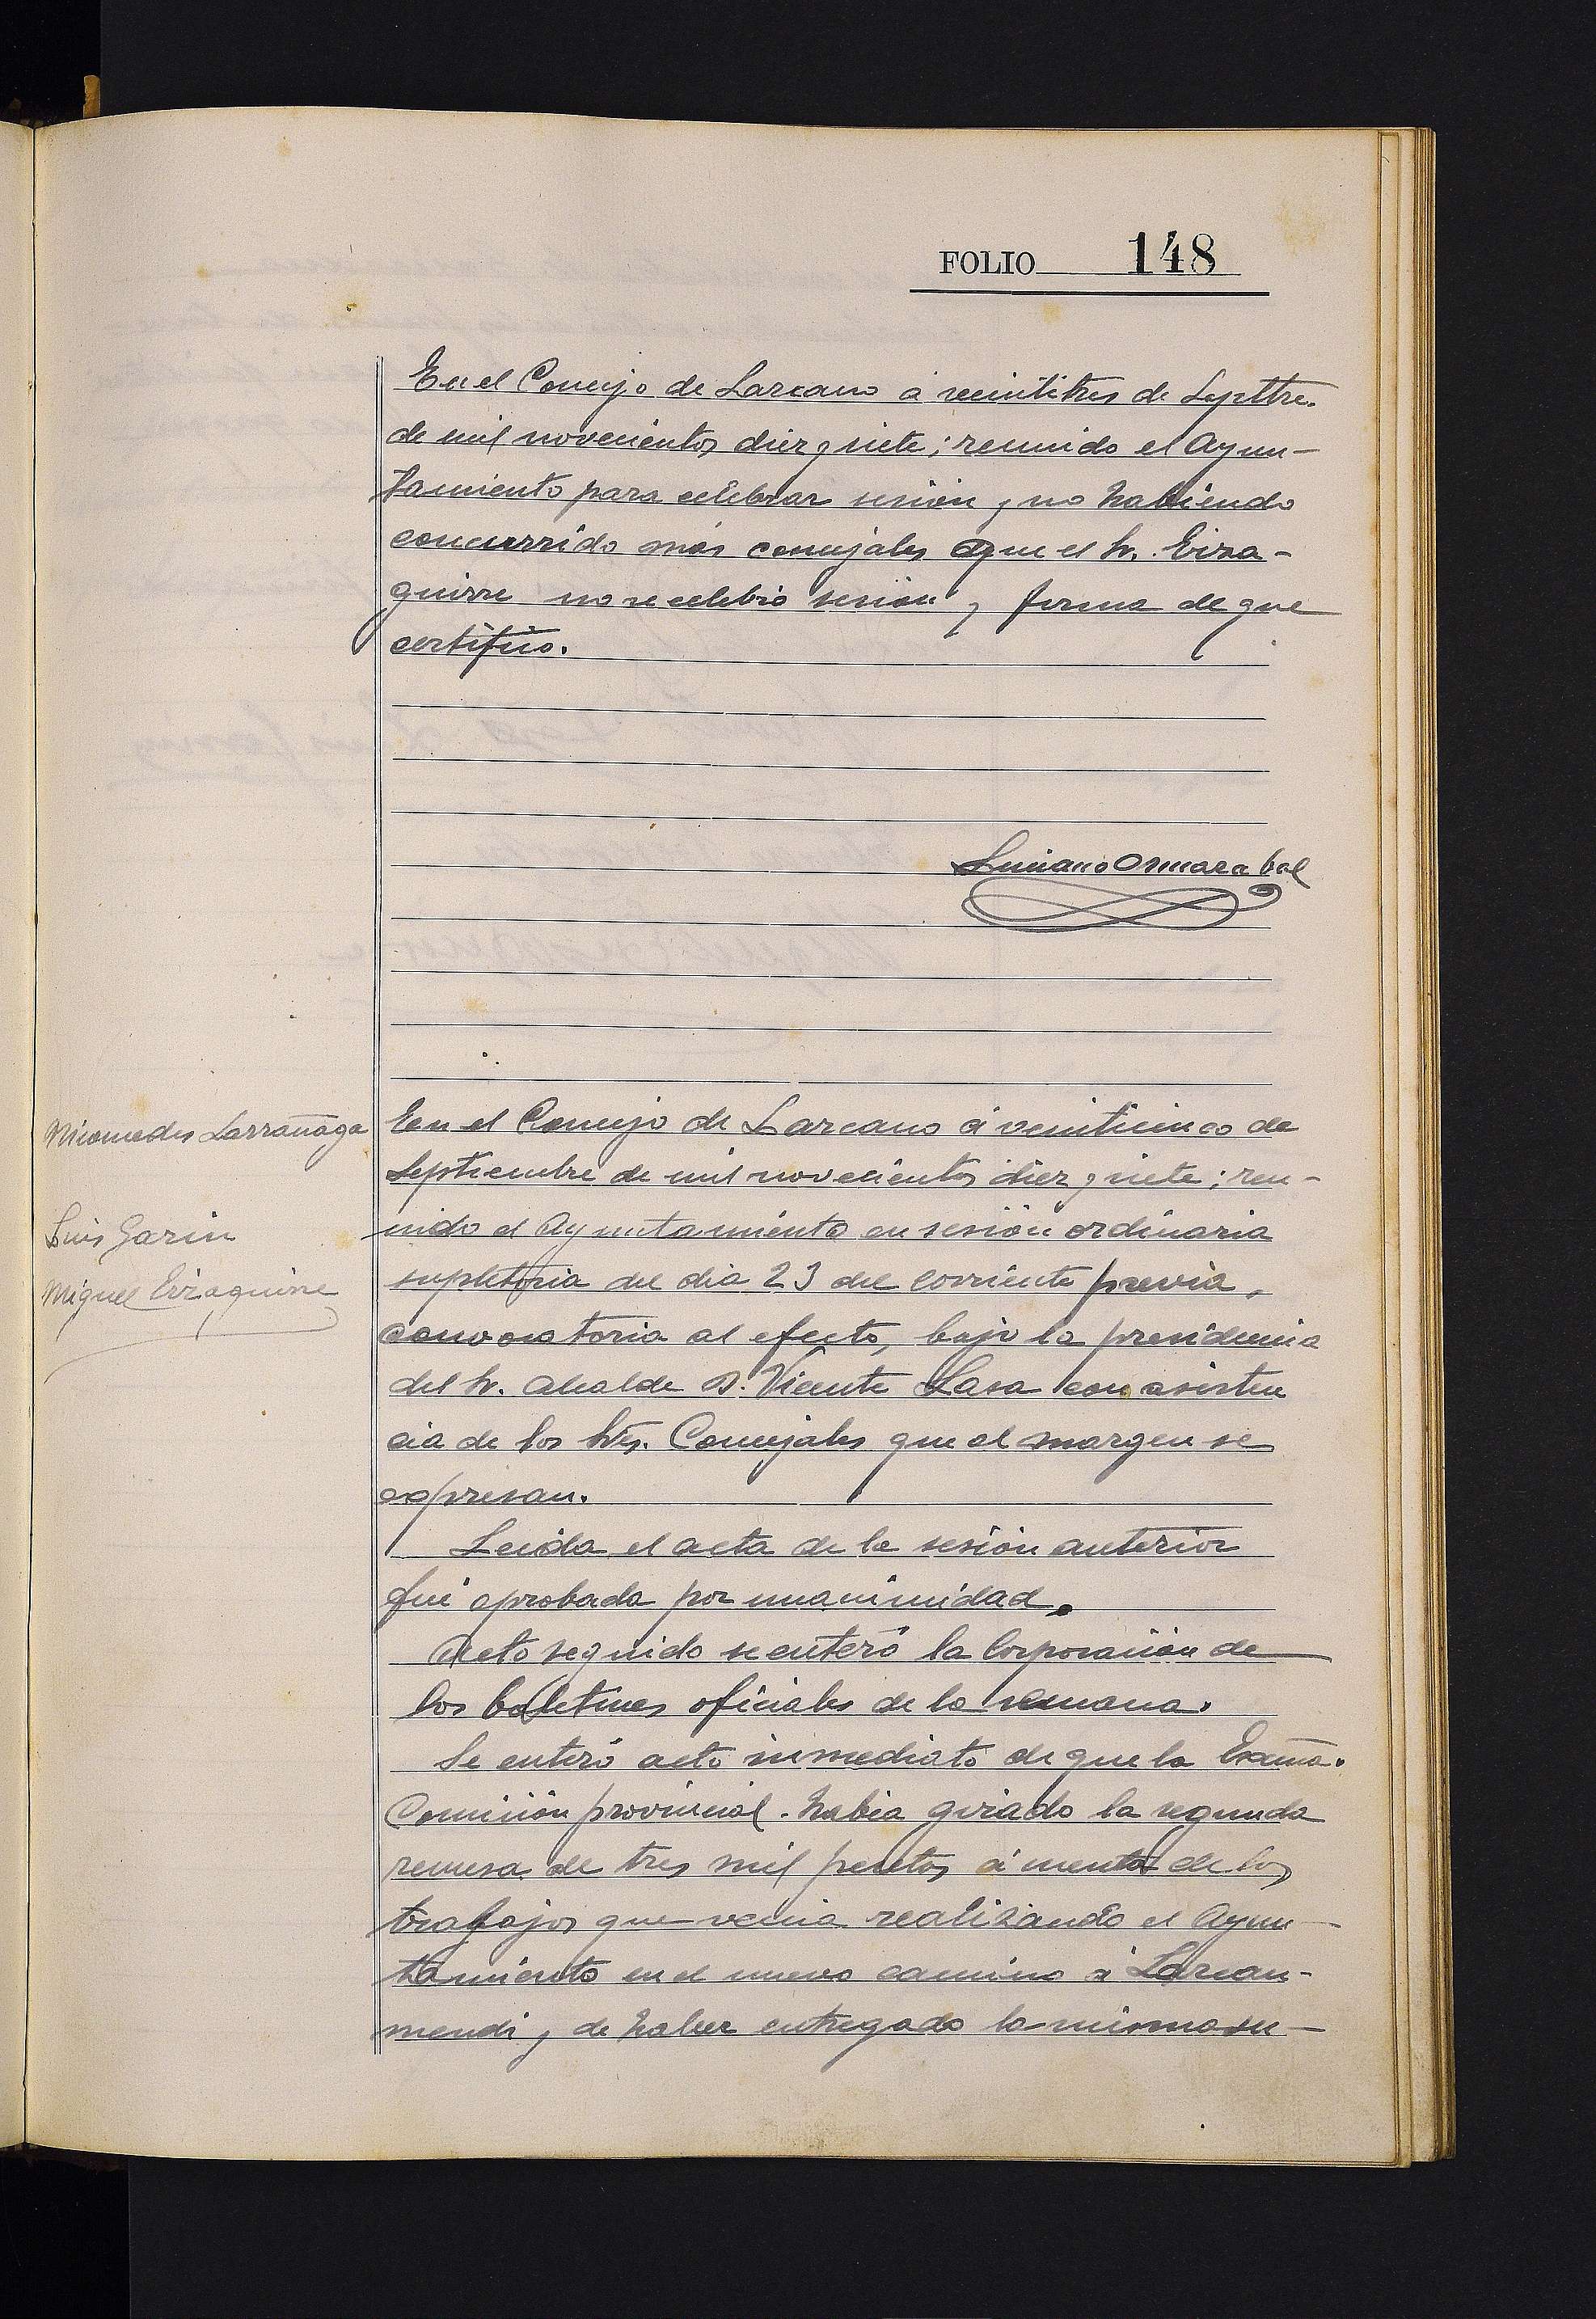 FOLIO 148
En el Concejo de Lazcano á veintitres de Septtre.
de mil novecientos diez y siete; reunido el Ayun-
tamiento para celebrar sesión y no habiendo
concurrido más concejales que el Sr. Eiza-
guirre no se celebró sesión y firma de que
certifico.
Luciano Ormazabal
Nicomedes Larrañaga
Luis Garin
Miguel Eizaguirre
En el Concejo de Lazcano á veinticinco de
Septiembre de mil novecientos diez y siete; reu-
nido el Ayuntamiento en sesión ordinaria
supletoria del dia 23 del corriente previa,
convocatoria al efecto, bajo la presidencia
del Sr. Alcalde D. Vicente Lasa con asisten
cia de los Sres. Concejales que al margen se
expresan.
Leida el acta de la sesión anterior
fué aprobada por unanimidad.
Acto seguido se enteró la Corporación de
los boletines oficiales de la semana.
Se enteró acto inmediato de que la Excma.
Comisión provincial. habia girado la segunda
remesa de tres mil pesetas á cuenta de los
trabajos que venia realizando el Ayun-
tamiento en el nuevo camino á Lazcau-
mendi y de haber entregado la misma su-